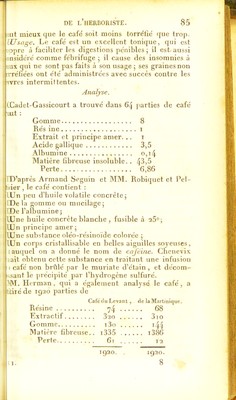 DE L'HERBORISTE. 85
out mieux que le café soit moins torréfié que trop.
Usage. Le café est un excellent tonique, qui est
propre à faciliter les digestions pénibles; il est aussi
considéré comme fébrifuge; il cause des insomnies à
ceux qui ne sont pas faits à son usage; ses graines non
torréfiées ont été administrées avec succès contre les
fièvres intermittentes.
Analyse.
Cadet-Gassicourt a trouvé dans 64 parties de café
Gomme 8
Résine 1
Extrait et principe amer.. 1
Acide gallique 3,5
Albumine 0,14
Matière fibreuse insoluble.. 43,5
Perte 6,86
D'après Armand Seguin et MM. Robiquet et Pel-
letier, le café contient:
Un peu d'huile volatile concrète;
De la gomme ou mucilage;
De l'albumine;
Une huile concrète blanche, fusible à 25°;
Un principe amer;
Une substance oléo-résinoïde colorée;
Un corps cristallisable en belles aiguilles soyeuses,
auquel on a donné le nom de caféine. Chenevix
avait obtenu cette substance en traitant une infusion
café non brûlé par le muriate d'étain, et décom-
posant le précipité par l'hydrogène sulfuré.
M. Herman, qui a également analysé le café, a
tiré de 1920 parties de
Café du Levant, de la Martinique.
Résine 74 68
Extractif 320 310
Gomme 130 144
Matière fibreuse.. 1335 1386
Perte 61 12
1920. 1920.
8